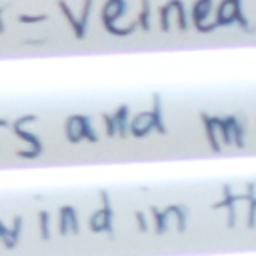 -veined
s and m
wind in th